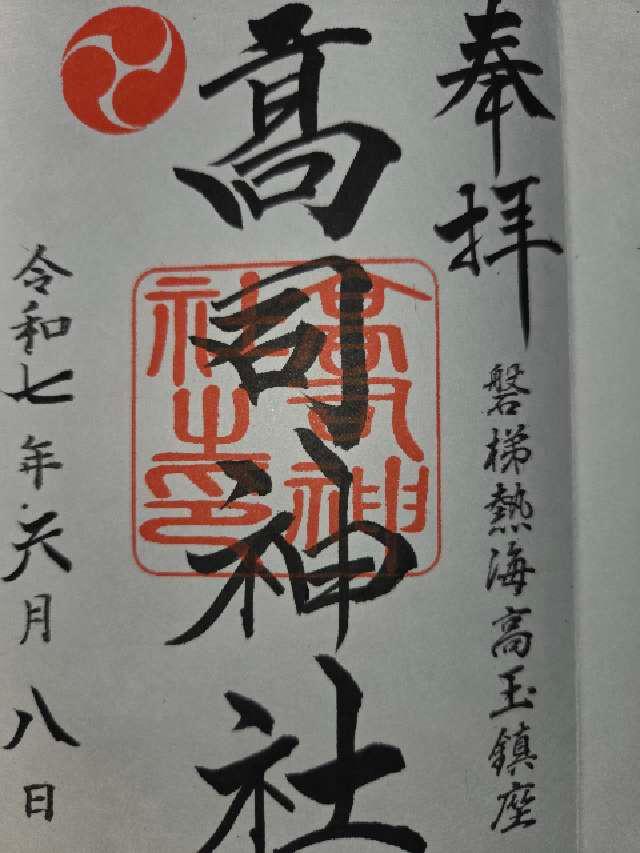 奉拝
磐梯熱海高玉鎮座
髙司神社
高司神社之印
令和七年六月八日